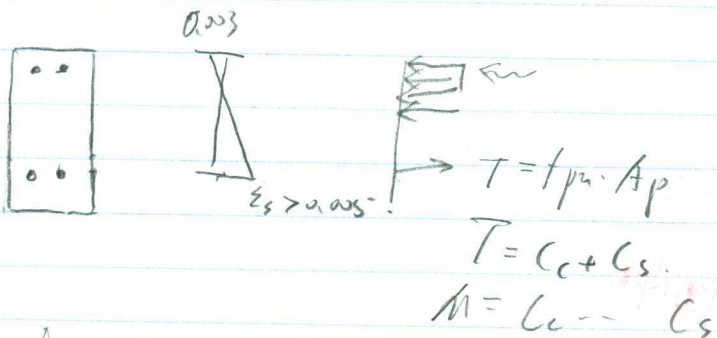 0.003
εs > 0.005
T = fpu · Ap
T = Cc + Cs.
M = Cc -- Cs